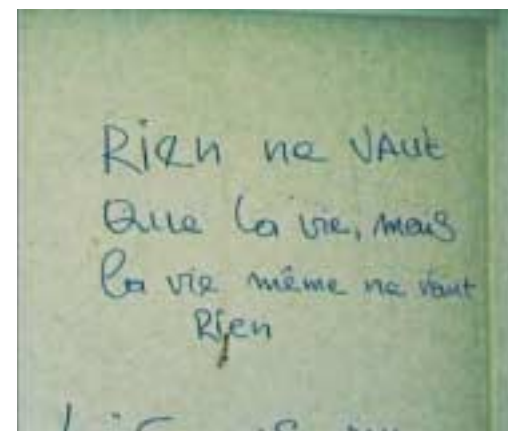 Rien ne vaut
Que la vie, mais
la vie même ne vaut
Rien